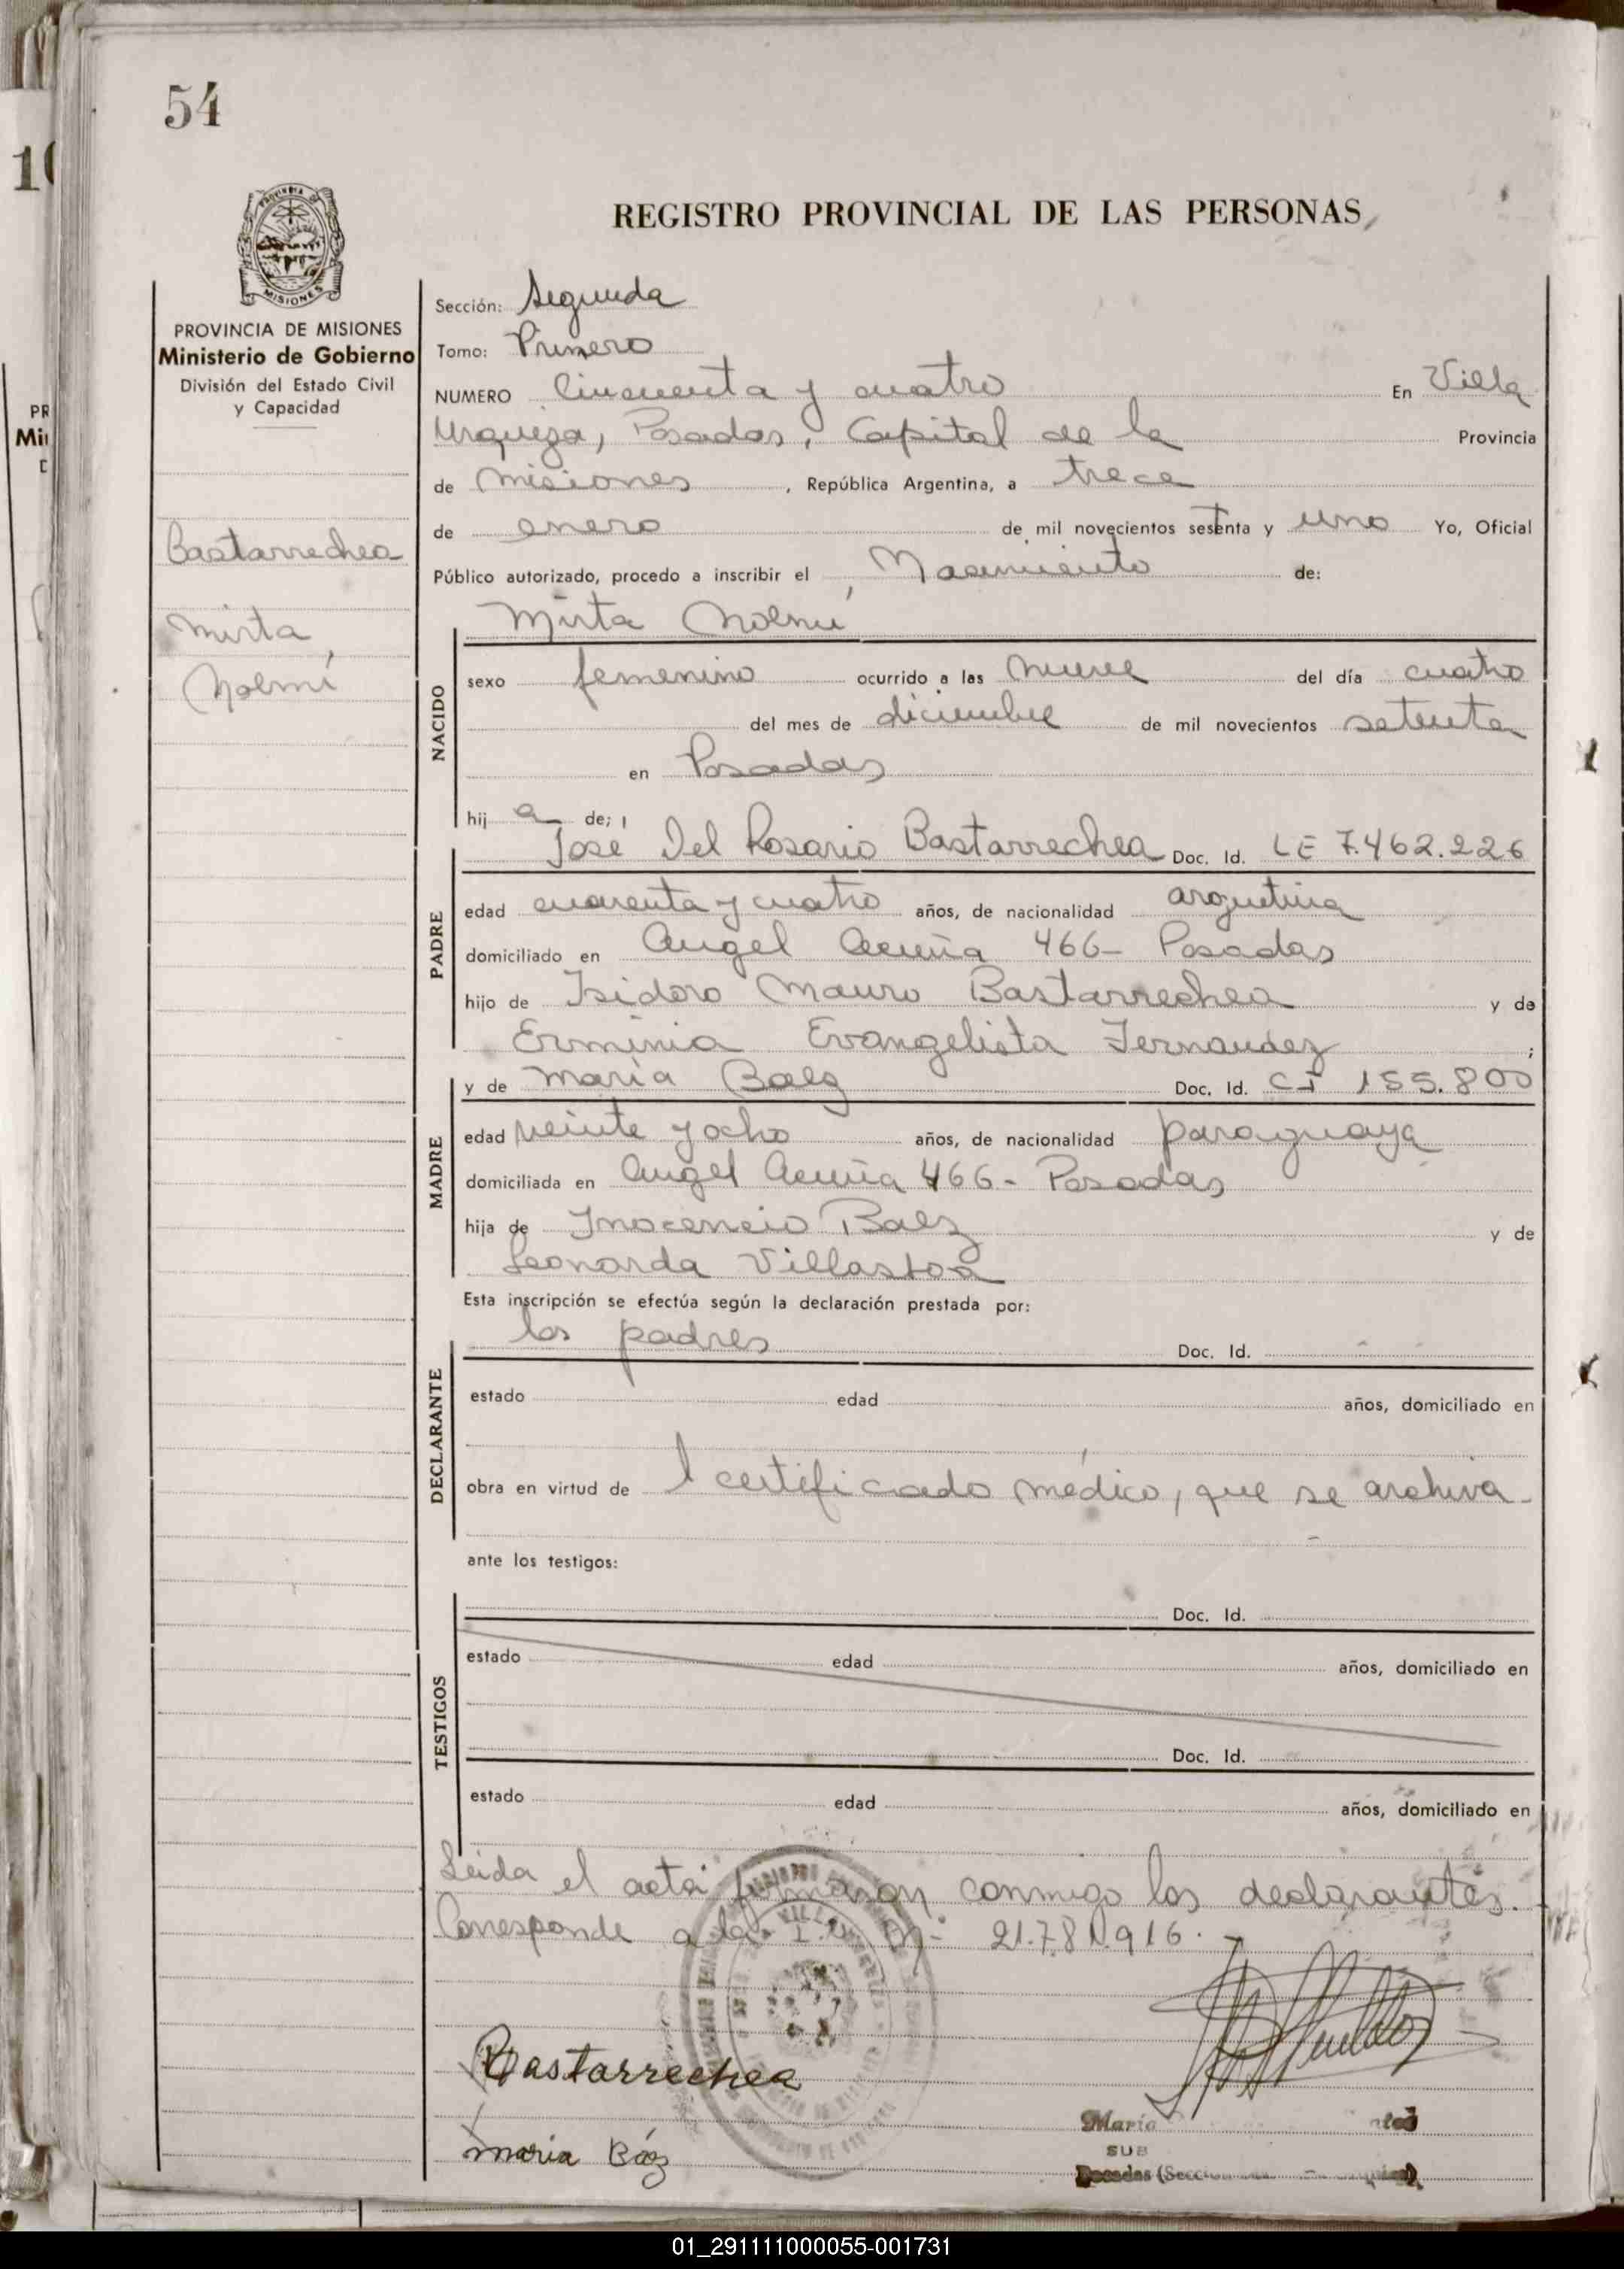 54
REGISTRO PROVINCIAL DE LAS PERSONAS
PROVINCIA
MISIONES
PROVINCIA DE MISIONES
Ministerio de Gobierno
División del Estado Civil
y Capacidad
Bastarrechea
Mirta
Noemí
Sección: Segunda
Tomo: Primero
NUMERO Cincuenta y cuatro En Villa
Urquiza, Posadas, Capital de la Provincia
de Misiones, República Argentina, a trece
de enero de mil novecientos setenta y uno Yo, Oficial
Público autorizado, procedo a inscribir el Nacimiento de:
Mirta Noemí
NACIDO
sexo femenino ocurrido a las nueve del día cuatro
del mes de diciembre de mil novecientos setenta
en Posadas
hij a de;
Jose Del Rosario Bastarrechea Doc. Id. LE 7.462.226
PADRE
edad cuarenta y cuatro años, de nacionalidad argentina
domiciliado en Angel Acuña 466- Posadas
hijo de Isidoro Mauro Bastarrechea y de
Erminia Evangelista Fernandez ;
y de Maria Baez Doc. Id. CI 155.800
MADRE
edad veinte y ocho años, de nacionalidad paraguaya
domiciliada en Angel Acuña 466- Posadas
hija de Inocencio Baez y de
Leonarda
Esta inscripción se efectúa según la declaración prestada por:
los padres Doc. Id.
DECLARANTE
estado edad años, domiciliado en
obra en virtud de 1 certificado médico, que se archiva-
ante los testigos:
Doc. Id.
TESTIGOS
estado edad años, domiciliado en
Doc. Id.
estado edad años, domiciliado en
Leida el acta firmaron conmigo los declarantes.
Corresponde a la
Bastarrechea
Maria Báez
Maria
SUB
Posadas
01_291111000055-001731